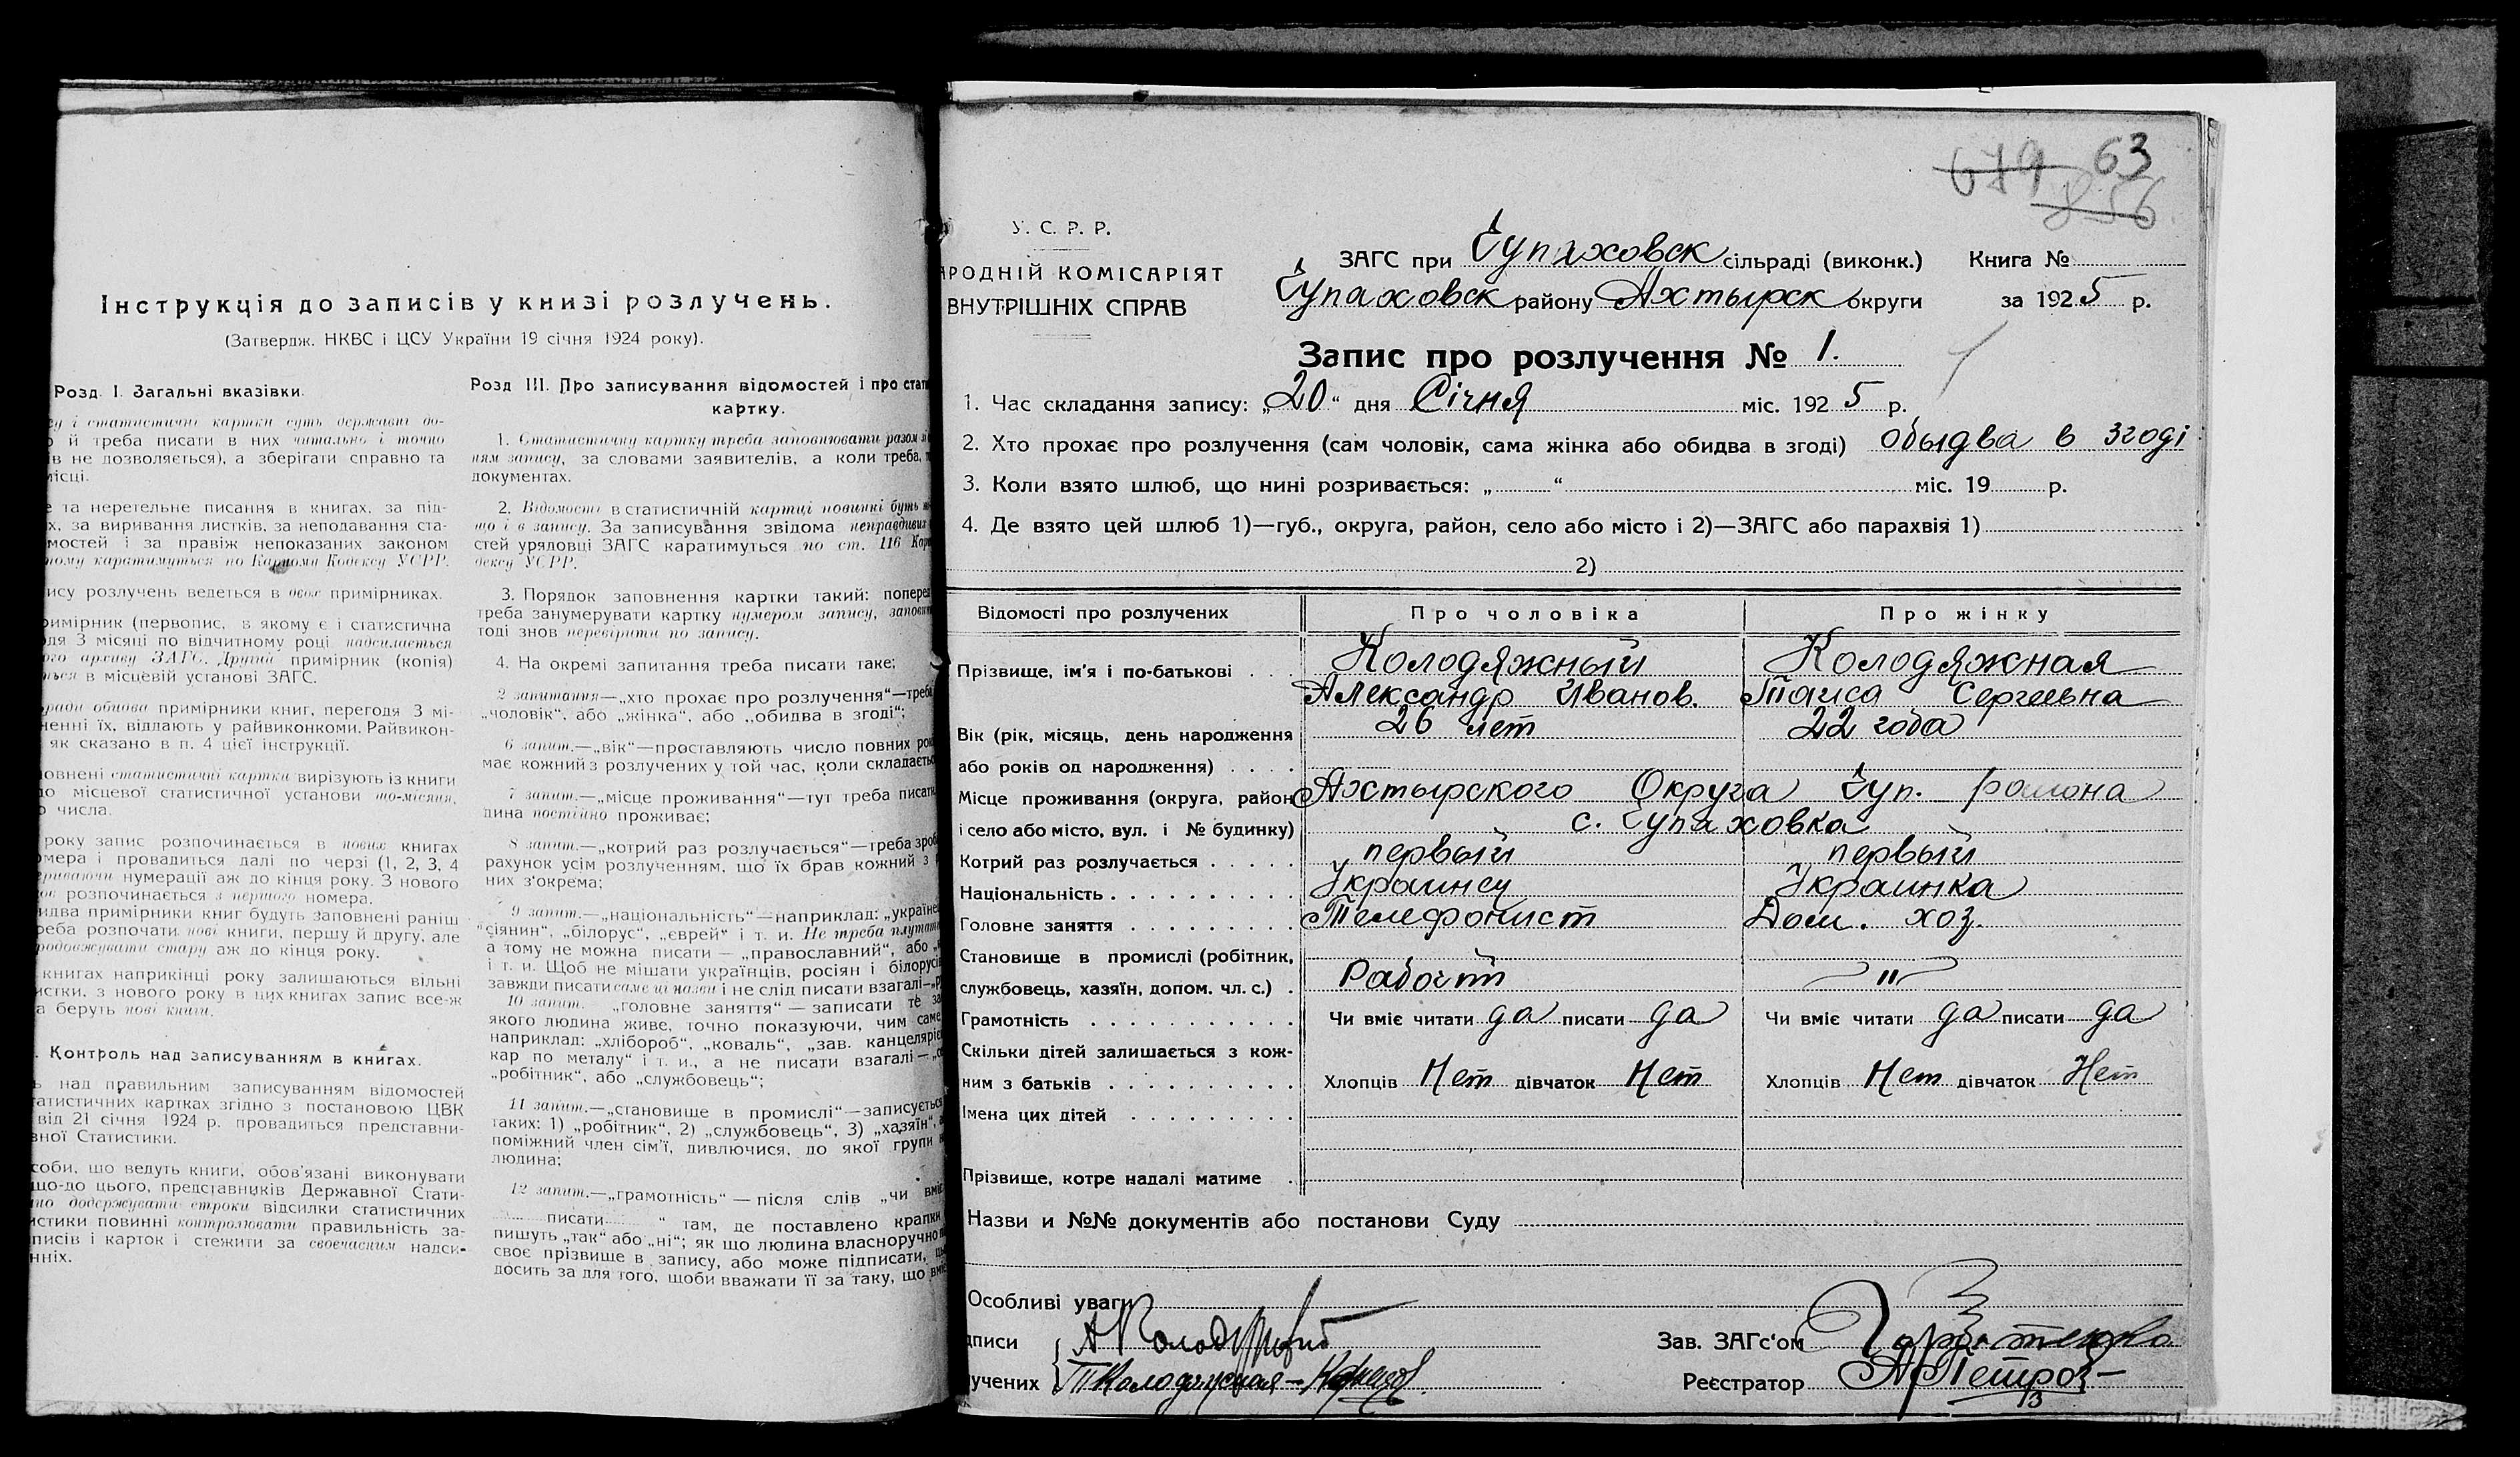 Інструкція до записів у книзі розлучень.
(Затвердж. НКВС і ЦСУ України 19 січня 1924 року).
Розд. I. Загальні вказівки.
й треба писати в них читально і точно
не дозволяється), а зберігати справно та
та неретельне писання в книгах, за під-
за виривання листків, за неподавання ста-
мостей і за правіж непоказаних законом
каратимуться по Карному Кодексу УСРР.
ису розлучень ведеться в двох примірниках.
римірник (первопис, в якому є і статистична
дя 3 місяці по відчитному році надсилається
архиву ЗАГС. Другий примірник (копія)
в місцевій установі ЗАГС.
обидва примірники книг, перегодя 3 мі-
ченні їх, віддають у райвиконкоми. Райвикон-
як сказано в п. 4 цієї інструкції.
овнені статистичні картки вирізують із книги
до місцевої статистичної установи що-місяця,
числа.
року запис розпочинається в нових книгах
омера і провадиться далі по черзі (1, 2, 3, 4
нумерації аж до кінця року. З нового
розпочинається з першого номера.
идва примірники книг будуть заповнені раніш
реба розпочати нові книги, першу й другу, але
продовжувати стару аж до кінця року.
книгах наприкінці року залишаються вільні
истки, з нового року в цих книгах запис все-ж
а беруть нові книги.
Контроль над записуванням в книгах.
над правильним записуванням відомостей
татистичних картках згідно з постановою ЦВК
від 21 січня 1924 р. провадиться представни-
вної Статистики.
соби, що ведуть книги, обов'язані виконувати
що-до цього, представників Державної Стати-
додержувати строки відсилки статистичних
истики повинні контролювати правильність за-
писів і карток і стежити за своєчасним надси-
нніх.
Розд III. Про записування відомостей і про стат
картку.
1. Статистичну картку треба заповнювати разом зі
ням запису, за словами заявителів, а коли треба,
документах.
2. Відомости в статистичній картці повинні буть
що і в запису. За записування звідома неправдивих
стей урядовці ЗАГС каратимуться по ст. 116 Кар
дексу УСРР.
3. Порядок заповнення картки такий: поперед
треба занумерувати картку нумером запису, заповни
тоді знов перевірити по запису.
4. На окремі запитання треба писати таке:
2 запитання—„хто прохає про розлучення“—треба
„чоловік“, або „жінка“, або „обидва в згоді“;
6 запит.—„вік“—проставляють число повних рок
має кожний з розлучених у той час, коли складаєть
7 запит.—„місце проживання“—тут треба писати,
дина постійно проживає;
8 запит.—„котрий раз розлучається“—треба зроб
рахунок усім розлученням, що їх брав кожний з
них з'окрема;
9 запит.—„національність“—наприклад: „українець
„сіянин“, „білорус“, „єврей“ і т. и. Не треба плутати
а тому не можна писати — „православний“, або
і т. и. Щоб не мішати українців, росіян і білорусів
завжди писати саме ці назви і не слід писати взагалі—
10 запит. „головне заняття“ — записати те за
якого людина живе, точно показуючи, чим саме
наприклад: „хлібороб“, „коваль“, „зав. канцелярією
кар по металу“ і т. и., а не писати взагалі —
„робітник“, або „службовець“;
11 запит.—„становище в промислі“—записується
таких: 1) „робітник“, 2) „службовець“, 3) „хазяїн“,
поміжний член сім'ї, дивлючися, до якої групи
людина;
12 запит.—„грамотність“ — після слів „чи вміє
писати “ там, де поставлено крапки
пишуть „так“ або „ні“; як що людина власноручно
своє прізвище в запису, або може підписати,
досить за для того, щоби вважати її за таку, що вміє
679 63
856
У. С. Р. Р.
АРОДНІЙ КОМІСАРІЯТ
ВНУТРІШНІХ СПРАВ
ЗАГС при Чупаховск сільраді (виконк.) Книга №
Чупаховск району Ахтырск округи за 1925 р.
Запис про розлучення № 1.
1. Час складання запису: „20“ дня Січня міс. 1925 р.
2. Хто прохає про розлучення (сам чоловік, сама жінка або обидва в згоді) обыдва в згоді
3. Коли взято шлюб, що нині розривається: „ “ міс. 19 р.
4. Де взято цей шлюб 1)—губ., округа, район, село або місто і 2)—ЗАГС або парахвія 1)
2)
Відомості про розлучених Про чоловіка Про жінку
Прізвище, ім'я і по-батькові Колодяжный Колодяжная
Александр Иванов. Таиса Сергеевна
Вік (рік, місяць, день народження 26 лет 22 года
або років од народження)
Місце проживання (округа, район Ахтырского Округа Чуп. района
і село або місто, вул. і № будинку) с. Чупаховка
Котрий раз розлучається первый первый
Національність Украинец Украинка
Головне заняття Телефонист Дом. хоз.
Становище в промислі (робітник,
службовець, хазяїн, допом. чл. с.) Рабочий "
Грамотність Чи вміє читати да писати да Чи вміє читати да писати да
Скільки дітей залишається з кож-
ним з батьків Хлопців Нет дівчаток Нет Хлопців Нет дівчаток Нет
Імена цих дітей
Прізвище, котре надалі матиме
Назви и №№ документів або постанови Суду
Особливі уваги
дписи А Колодяжный Зав. ЗАГс'ом
лучених ТКолодяжная Реєстратор АПетров